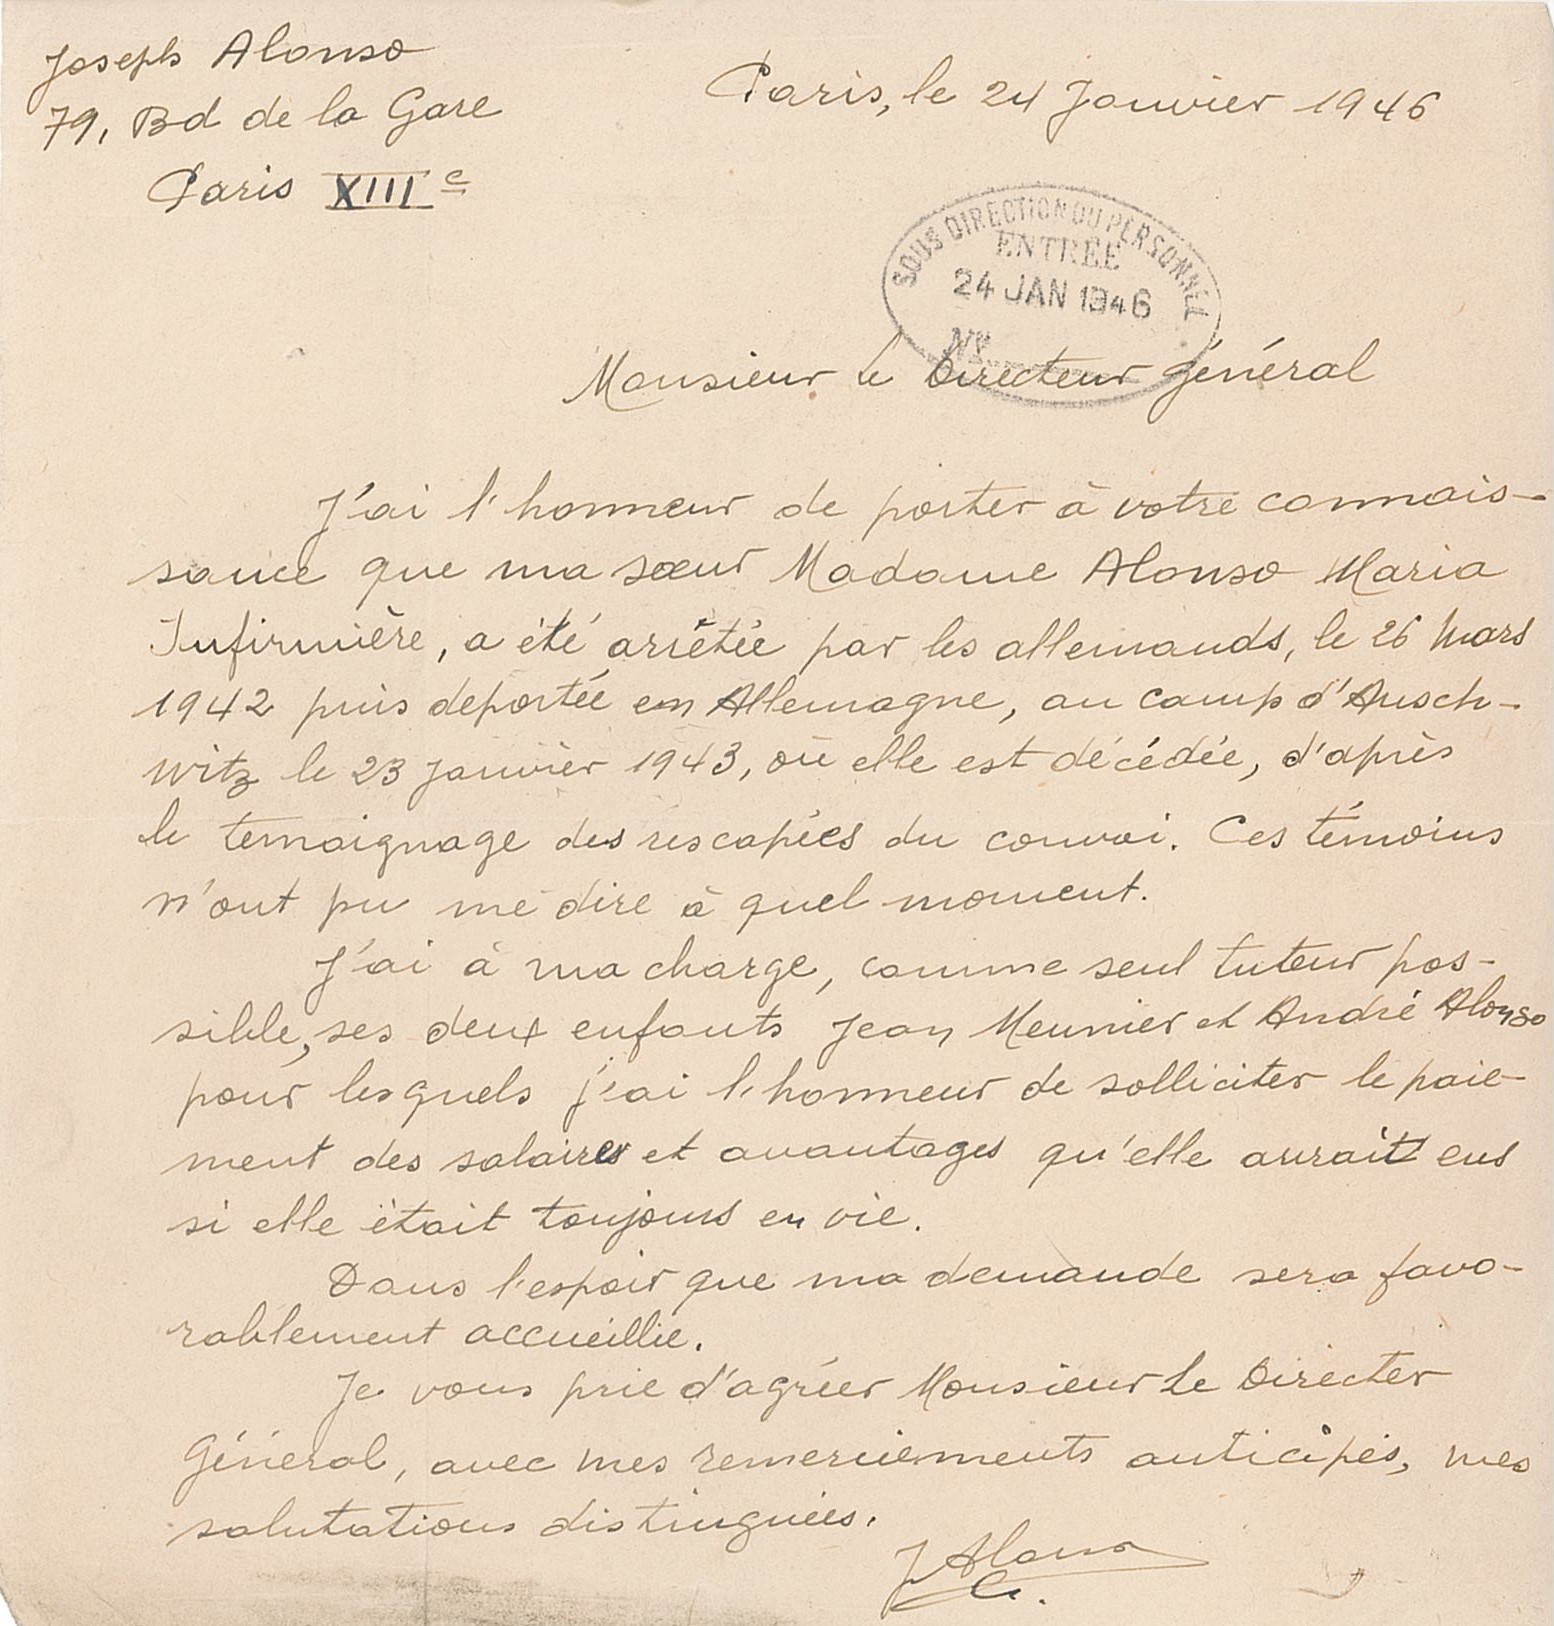 Joseph Alonso
79, Bd de la Gare
Paris XIIIe
Paris, le 24 Janvier 1946
SOUS DIRECTION DU PERSONNEL
ENTRÉE
24 JAN 1946
No
Monsieur le Directeur Général
J'ai l'honneur de porter à votre connais-
sance que ma sœur Madame Alonso Maria
Infirmière, a été arrêtée par les allemands, le 26 Mars
1942 puis deportée en Allemagne, au camp d'Ausch-
witz le 23 Janvier 1943, où elle est décédée, d'après
le temoignage des rescapées du convoi. Ces témoins
n'ont pu me dire à quel moment.
J'ai à ma charge, comme seul tuteur pos-
sible, ses deux enfants Jean Meunier et André Alonso
pour lesquels j'ai l'honneur de solliciter le paie-
ment des salaires et avantages qu'elle aurait eus
si elle était toujours en vie.
Dans l'espoir que ma demande sera favo-
rablement accueillie.
Je vous prie d'agréer Monsieur Le Directer
Général, avec mes remerciements anticipés, mes
salutations distinguées.
J Alonso